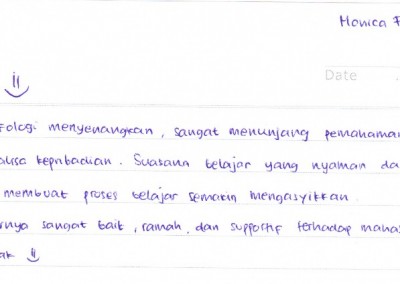 Monica F
Date
ologi menyenangkan, sangat menunjang pemahaman
alisa kepribadian. Suasana belajar yang nyaman da
membuat proses belajar semakin mengasyikkan.
rnya sangat baik, ramah, dan supportif terhadap maha
ak